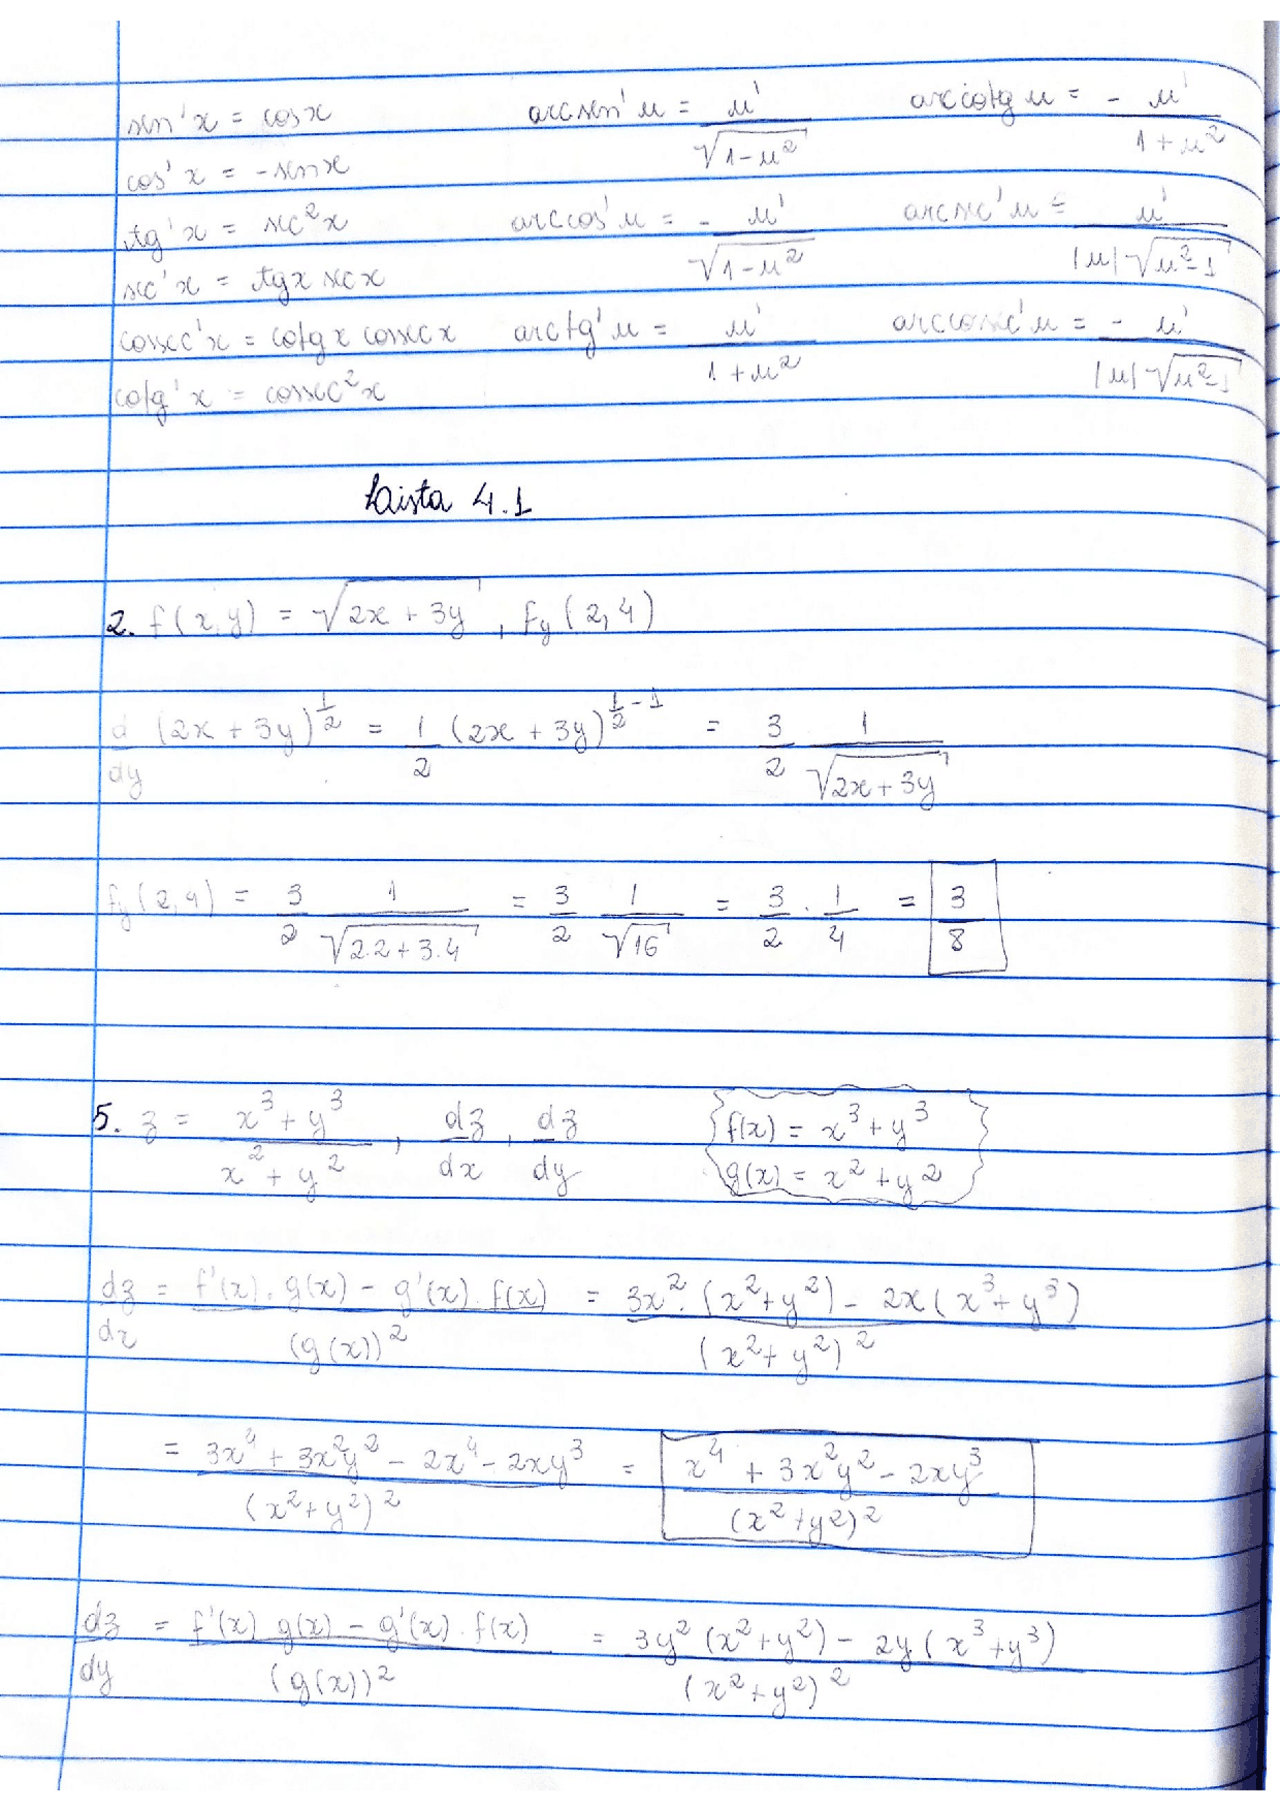 sen'x = cosx    arcsen'u = u'/√(1-u²)    arccotg u = - u'/(1+u²)
cos'x = -senx
tg'x = sec²x    arccos'u = - u'/√(1-u²)    arcsec'u = u'/(|u|√(u²-1))
sec'x = tgx secx
cossec'x = cotgx cossecx    arctg'u = u'/(1+u²)    arccossec'u = - u'/(|u|√(u²-1))
cotg'x = cossec²x
Lista 4.1
2. f(x,y) = √(2x + 3y) , fy(2,4)
d/dy (2x + 3y)^(1/2) = 1/2 (2x + 3y)^(1/2 - 1) = 3/2 1/√(2x+3y)
fy(2,4) = 3/2 1/√(2.2+3.4) = 3/2 1/√16 = 3/2 . 1/4 = 3/8
5. z = (x³+y³)/(x²+y²) , dz/dx , dz/dy    f(x) = x³+y³
g(x) = x²+y²
dz/dx = (f'(x).g(x) - g'(x).f(x))/(g(x))² = (3x².(x²+y²) - 2x(x³+y³))/(x²+y²)²
= (3x⁴ + 3x²y² - 2x⁴ - 2xy³)/(x²+y²)² = (x⁴ + 3x²y² - 2xy³)/(x²+y²)²
dz/dy = (f'(x) g(x) - g'(x).f(x))/(g(x))² = (3y²(x²+y²) - 2y(x³+y³))/(x²+y²)²